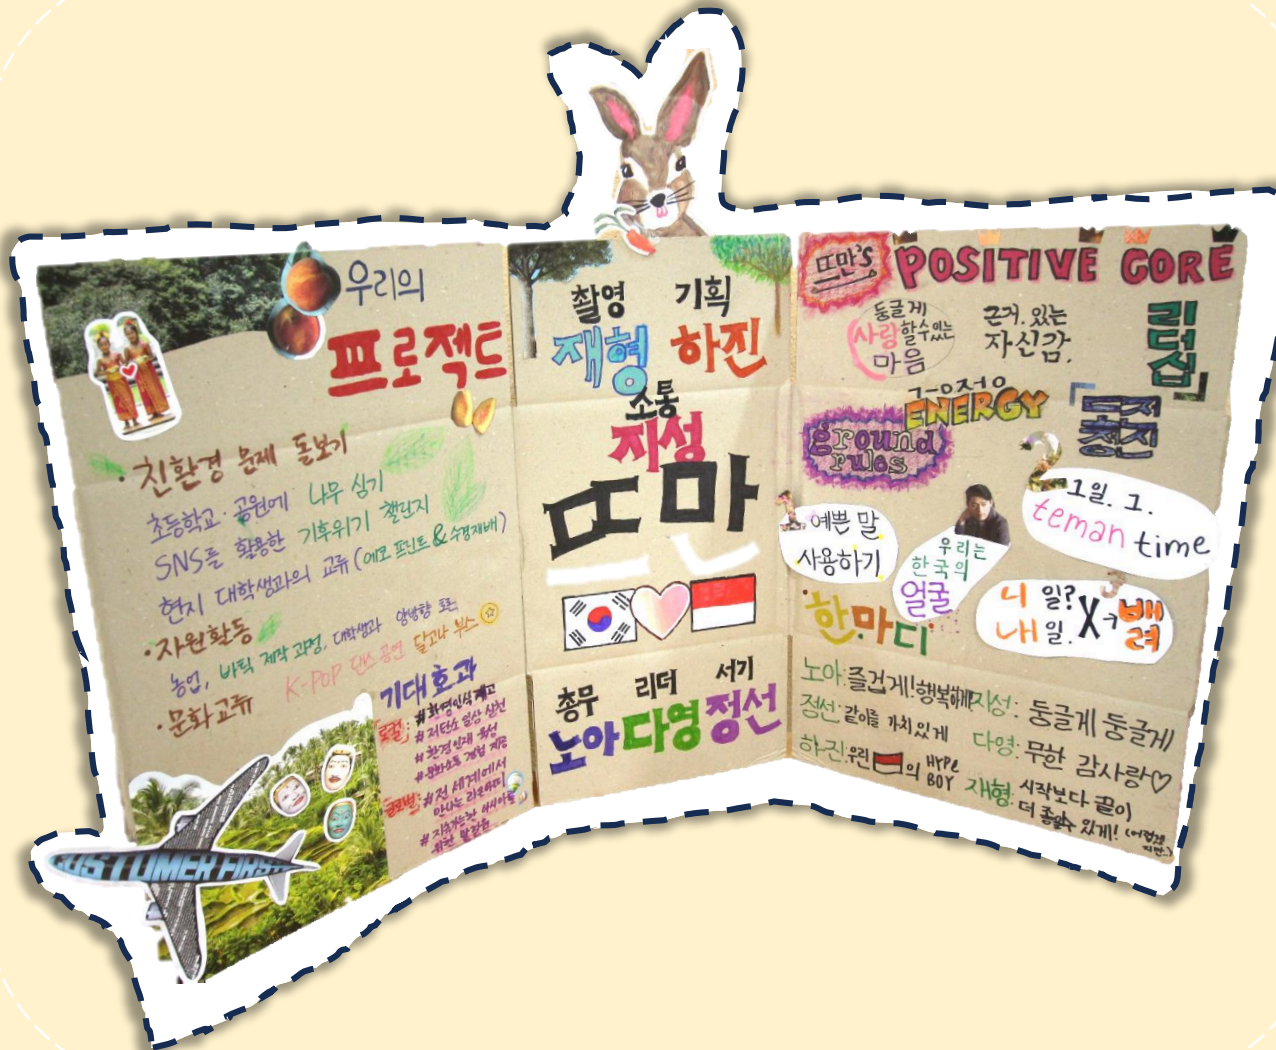 우리의
프로젝트
· 친환경 문제 돌보기
초등학교·공원에 나무 심기
SNS를 활용한 기후위기 챌린지
현지 대학생과의 교류 (에코 프린트 & 수경재배)
· 자원활동
농업, 바틱 제작 과정, 대학생과 양방향 토론
· 문화교류 K-POP 댄스 공연 달고나 부스
기대효과
로컬: #환경인식 제고
#저탄소 일상 실천
#환경인재 육성
#문화소통 경험 제공
글로벌: #전 세계에서
만나는
위한 발걸음
CUSTOMER FIRST
촬영 기획
재형 하진
소통
지성
뜨만
총무 리더 서기
노아 다영 정선
뜨만's POSITIVE CORE
둥글게
사랑할 수 있는
마음
근거 있는
자신감.
리더십
긍정적 ENERGY
도전
정진
ground
rules
1
예쁜 말
사용하기
우리는
한국의
얼굴
2
1일. 1.
teman time
3
니 일?
내 일. X → 배려
한마디
노아: 즐겁게! 행복하게
지성: 둥글게 둥글게
정선: 같이를 가치있게
다영: 무한 감사랑♡
하진: 우린 의 HYPE BOY
재형: 시작보다 끝이
더 좋을 수 있게! (어렵겠지만..)